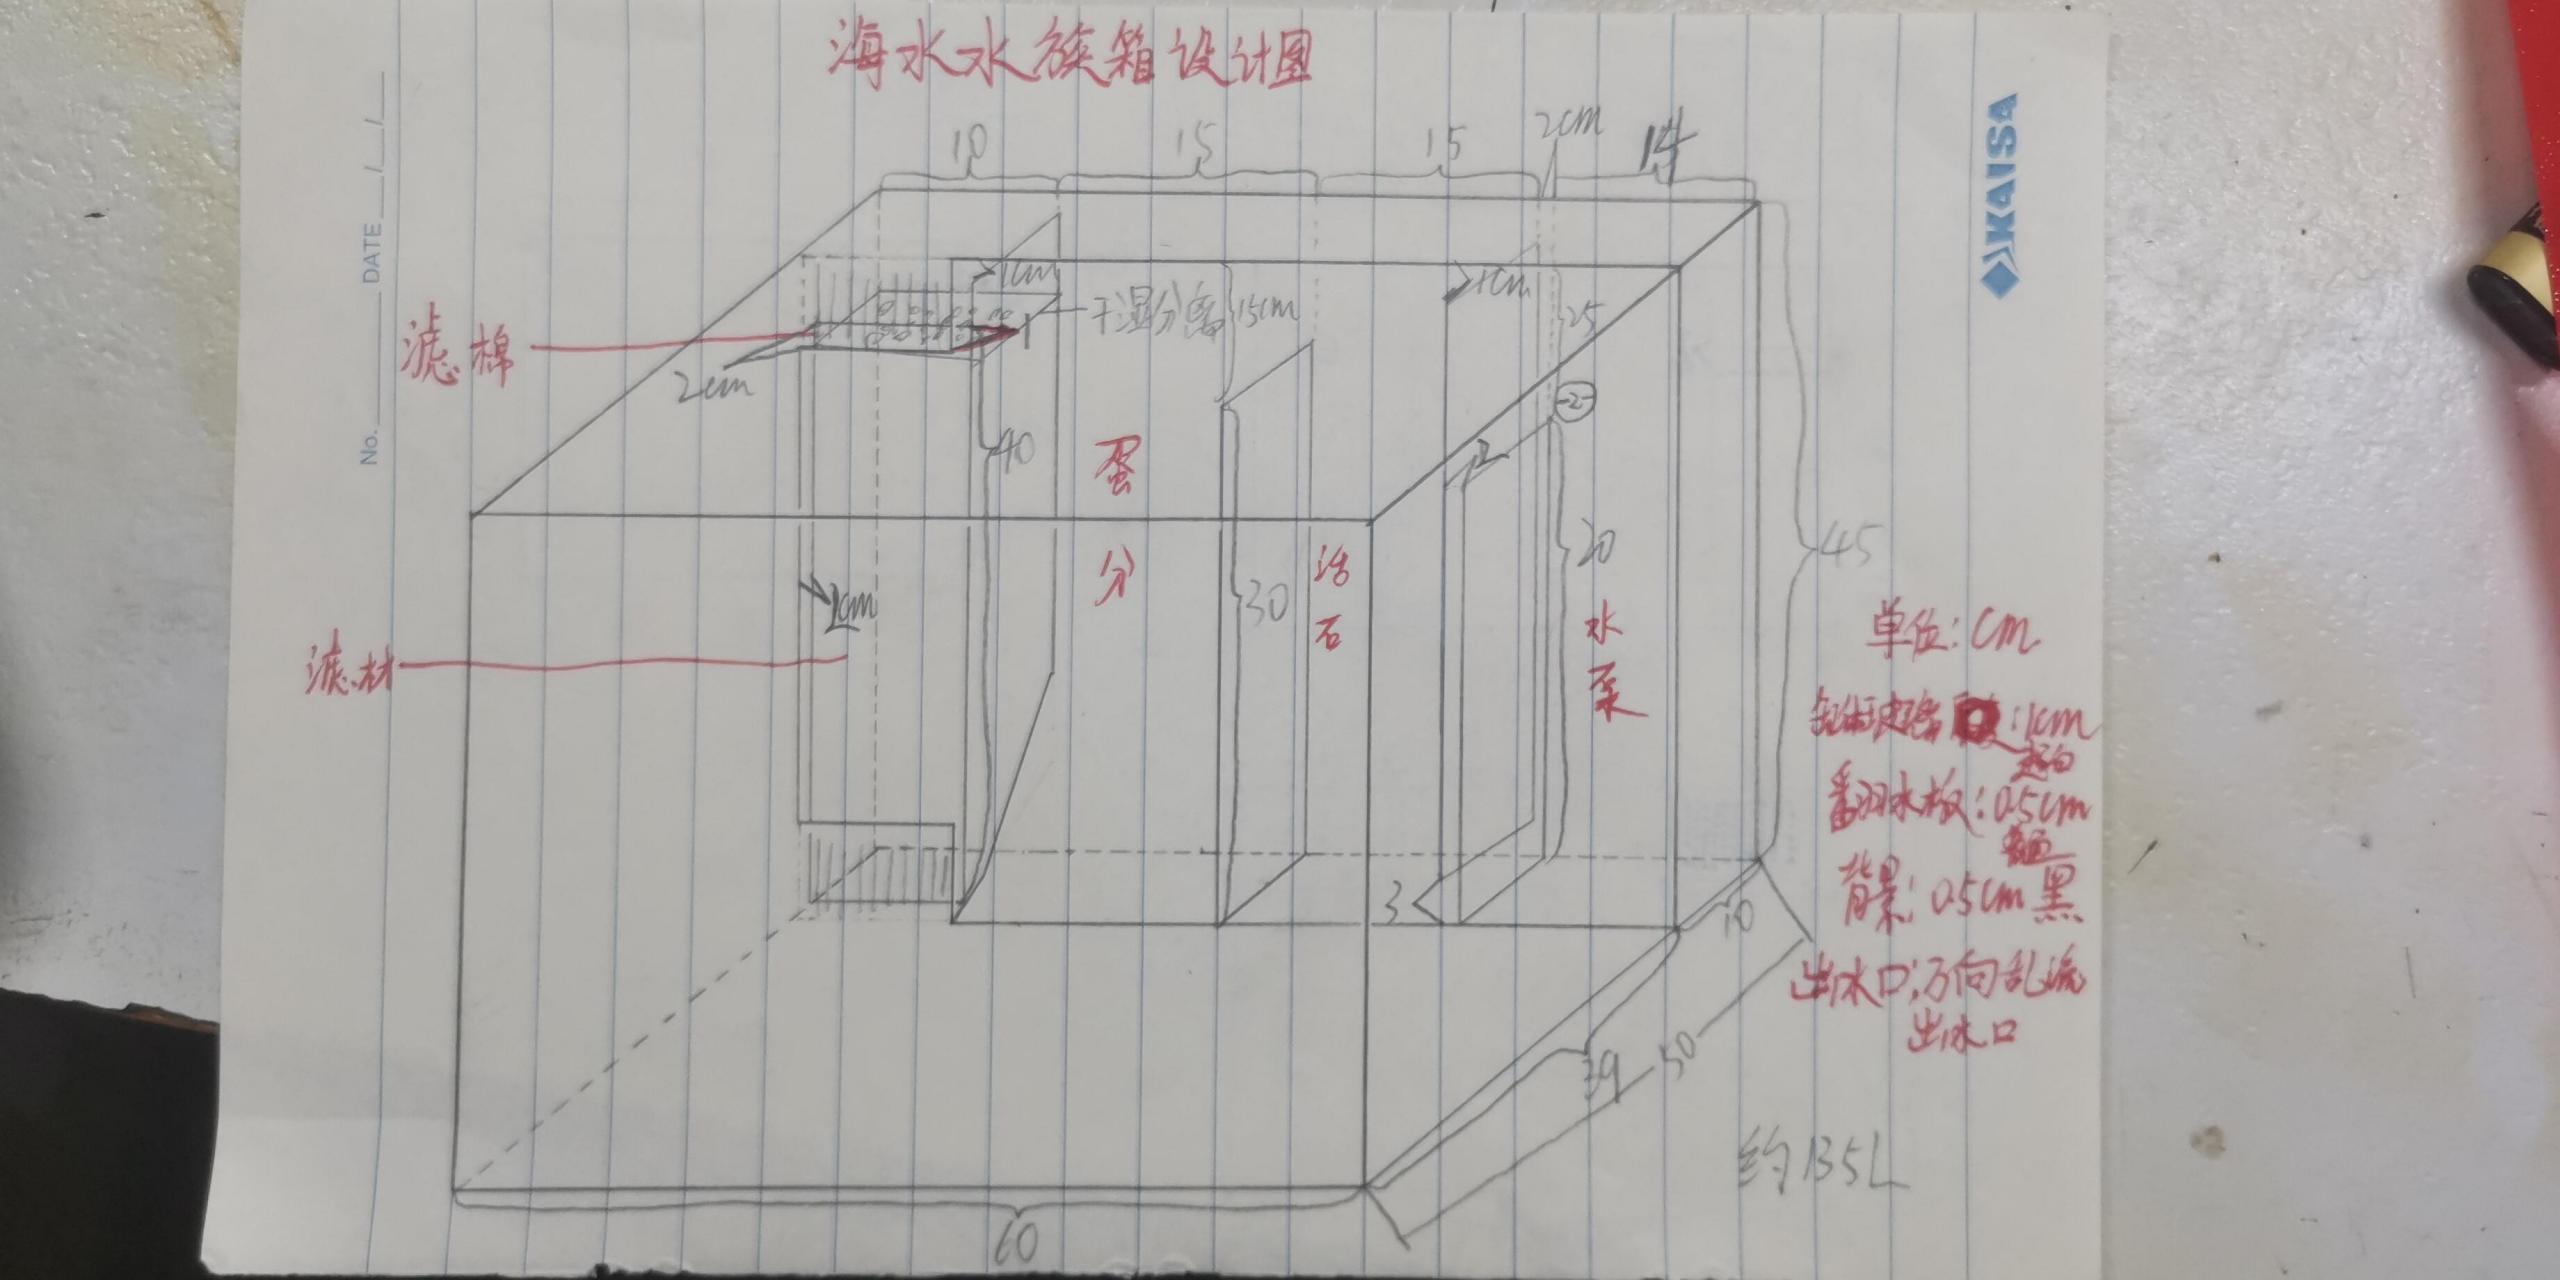 海水水族箱设计图
KAISA
No. DATE / /
10
15
15
2cm
14
1cm
1cm
干湿分离
15cm
25
滤棉
2cm
1
-2-
2
40
蛋分
30
活石
20
水泵
45
2cm
滤材
3
10
39
50
60
单位:cm
1cm
翻水板:0.5cm
背景:0.5cm黑
出水口:万向乱流
出水口
约135L